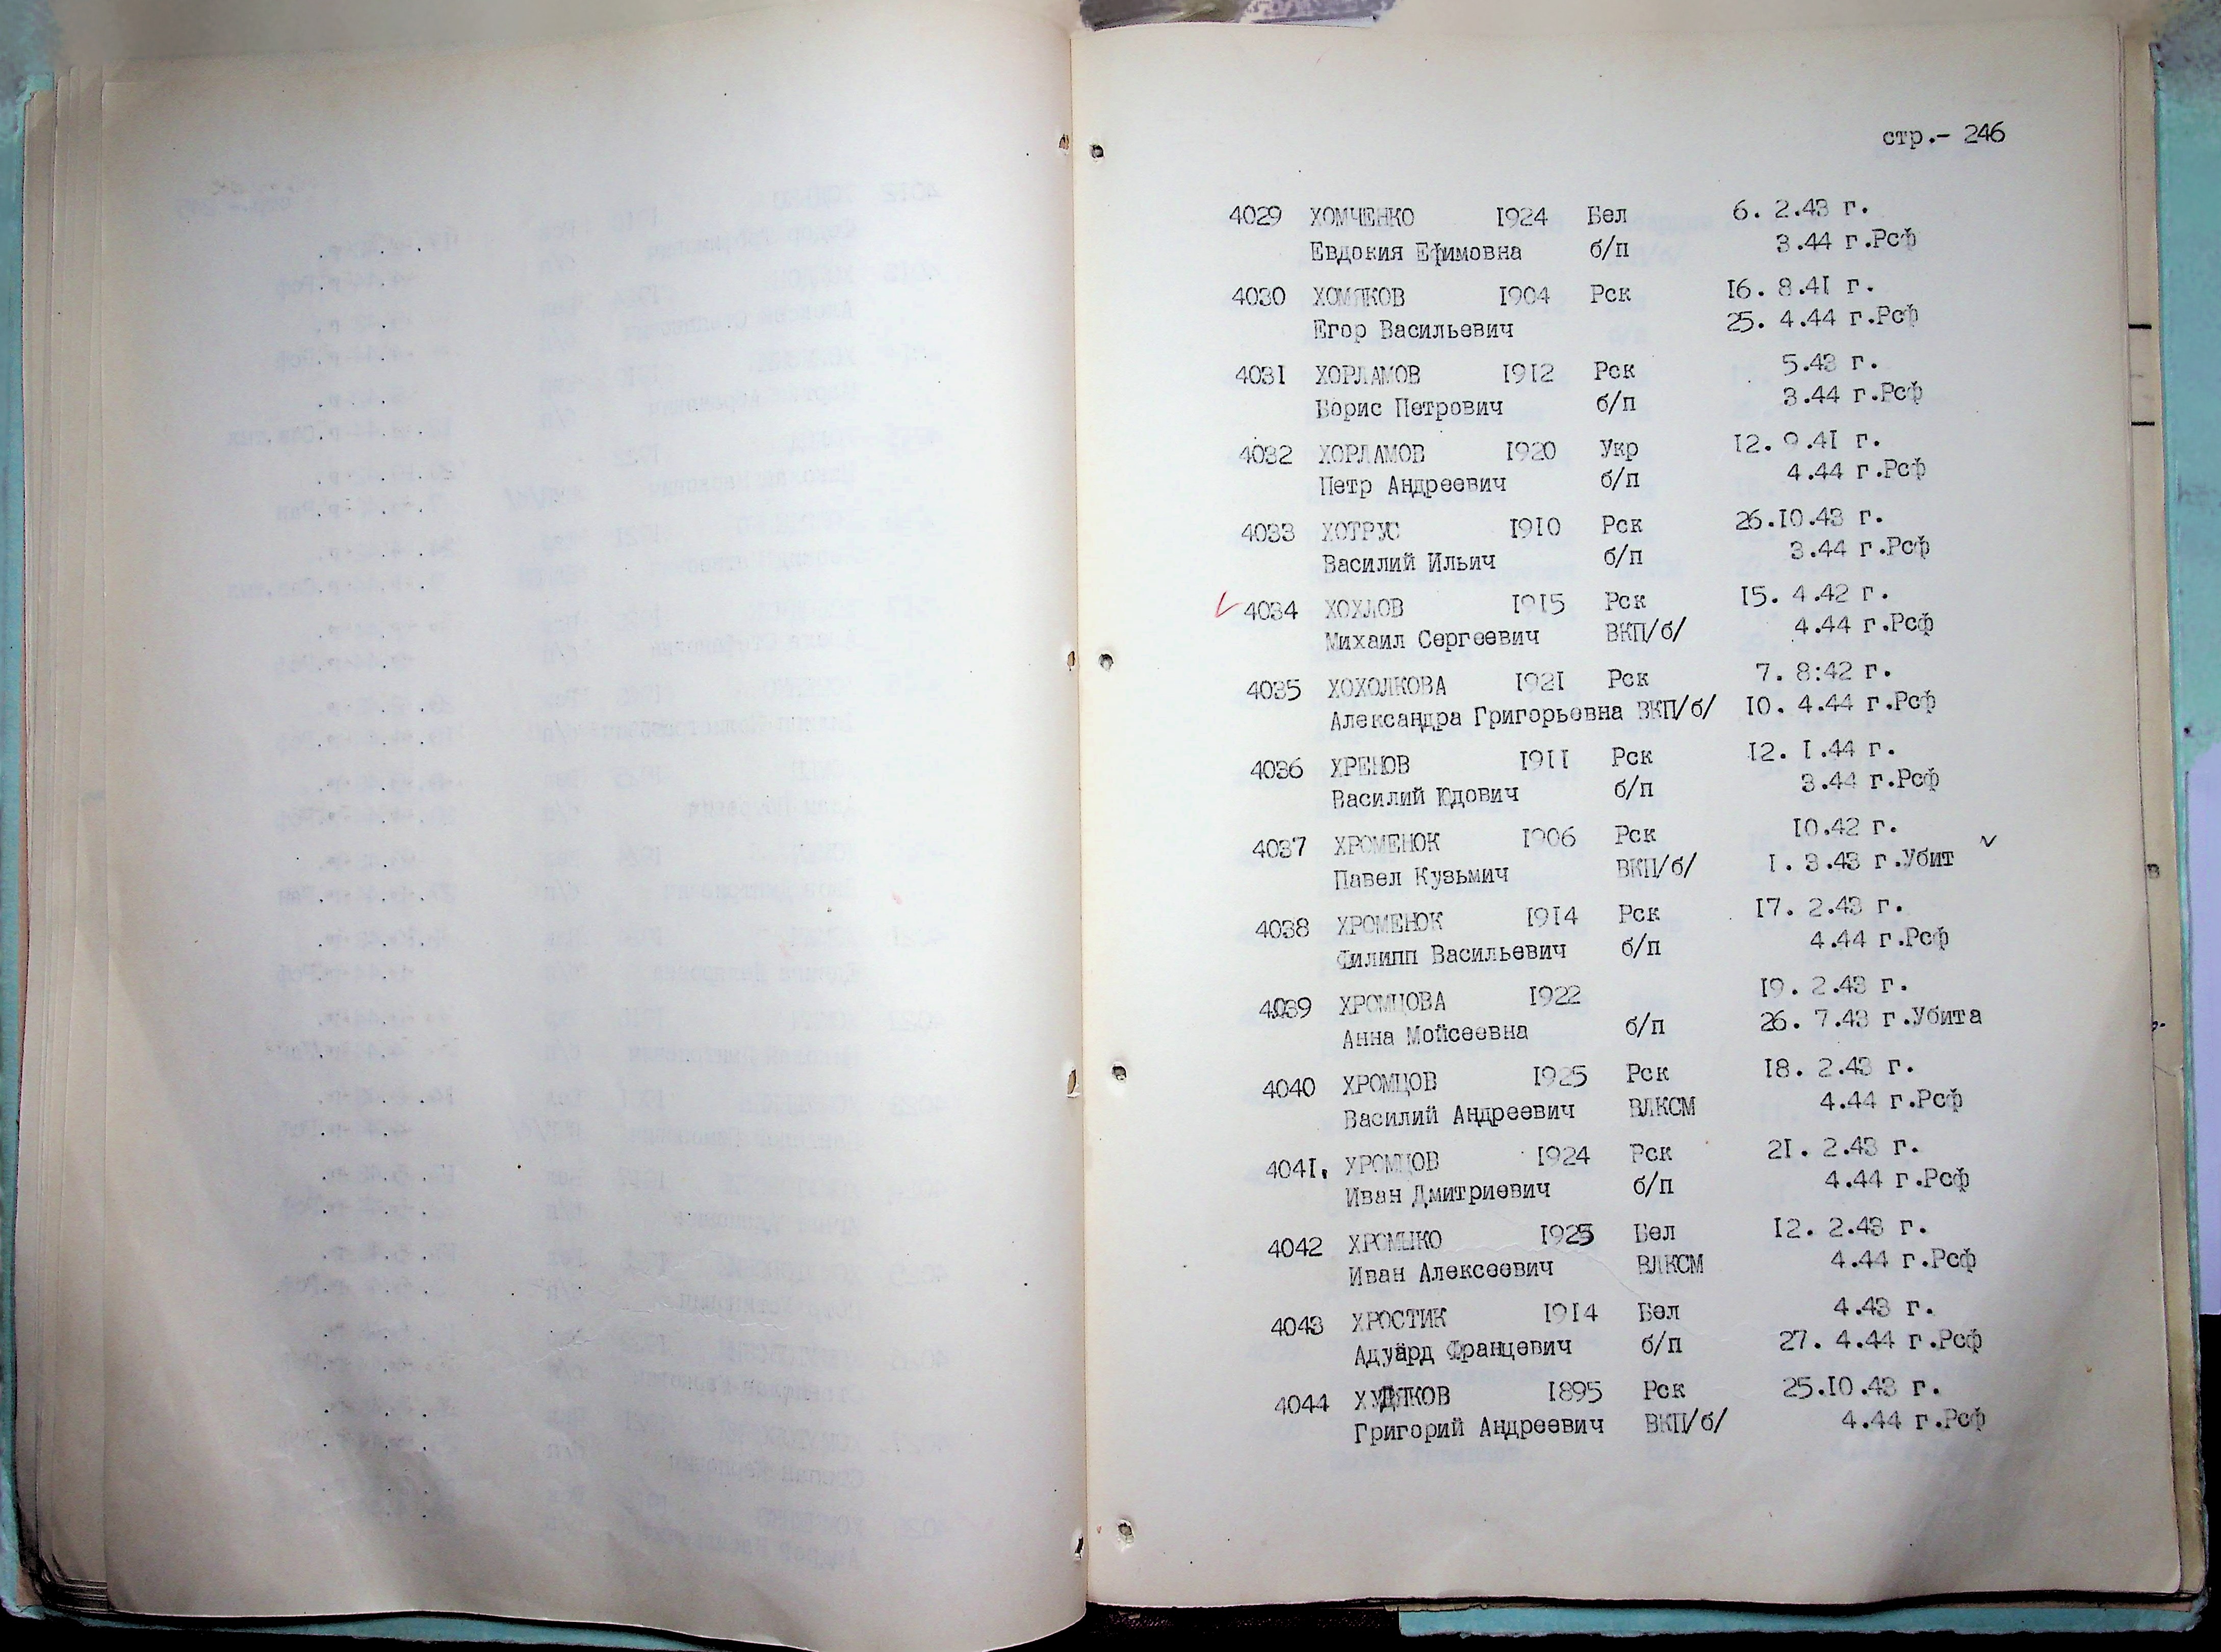 стр.- 246
4029 ХОМЧЕНКО 1924 Бел 6. 2.43 г.
Евдокия Ефимовна б/п 3.44 г.Рсф
4030 ХОМЯКОВ 1904 Рск 16. 8.41 г.
Егор Васильевич 25. 4.44 г.Рсф
4031 ХОРЛАМОВ 1912 Рск 5.43 г.
Борис Петрович б/п 3.44 г.Рсф
4032 ХОРЛАМОВ 1920 Укр 12. 9.41 г.
Петр Андреевич б/п 4.44 г.Рсф
4033 ХОТРУС 1910 Рск 26.10.43 г.
Василий Ильич б/п 3.44 г.Рсф
4034 ХОХЛОВ 1915 Рск 15. 4.42 г.
Михаил Сергеевич ВКП/б/ 4.44 г.Рсф
4035 ХОХОЛКОВА 1921 Рск 7. 8:42 г.
Александра Григорьевна ВКП/б/ 10. 4.44 г.Рсф
4036 ХРЕНОВ 1911 Рск 12. 1.44 г.
Василий Юдович б/п 3.44 г.Рсф
4037 ХРОМЕНОК 1906 Рск 10.42 г.
Павел Кузьмич ВКП/б/ 1. 3.43 г.Убит
4038 ХРОМЕНОК 1914 Рск 17. 2.43 г.
Филипп Васильевич б/п 4.44 г.Рсф
4039 ХРОМЦОВА 1922 19. 2.43 г.
Анна Мойсеевна б/п 26. 7.43 г.Убита
4040 ХРОМЦОВ 1925 Рск 18. 2.43 г.
Василий Андреевич ВЛКСМ 4.44 г.Рсф
4041. ХРОМЦОВ 1924 Рск 21. 2.43 г.
Иван Дмитриевич б/п 4.44 г.Рсф
4042 ХРОМЫКО 1925 Бел 12. 2.43 г.
Иван Алексеевич ВЛКСМ 4.44 г.Рсф
4043 ХРОСТИК 1914 Бел 4.43 г.
Адуард Францевич б/п 27. 4.44 г.Рсф
4044 ХУДЯКОВ 1895 Рск 25.10.43 г.
Григорий Андреевич ВКП/б/ 4.44 г.Рсф